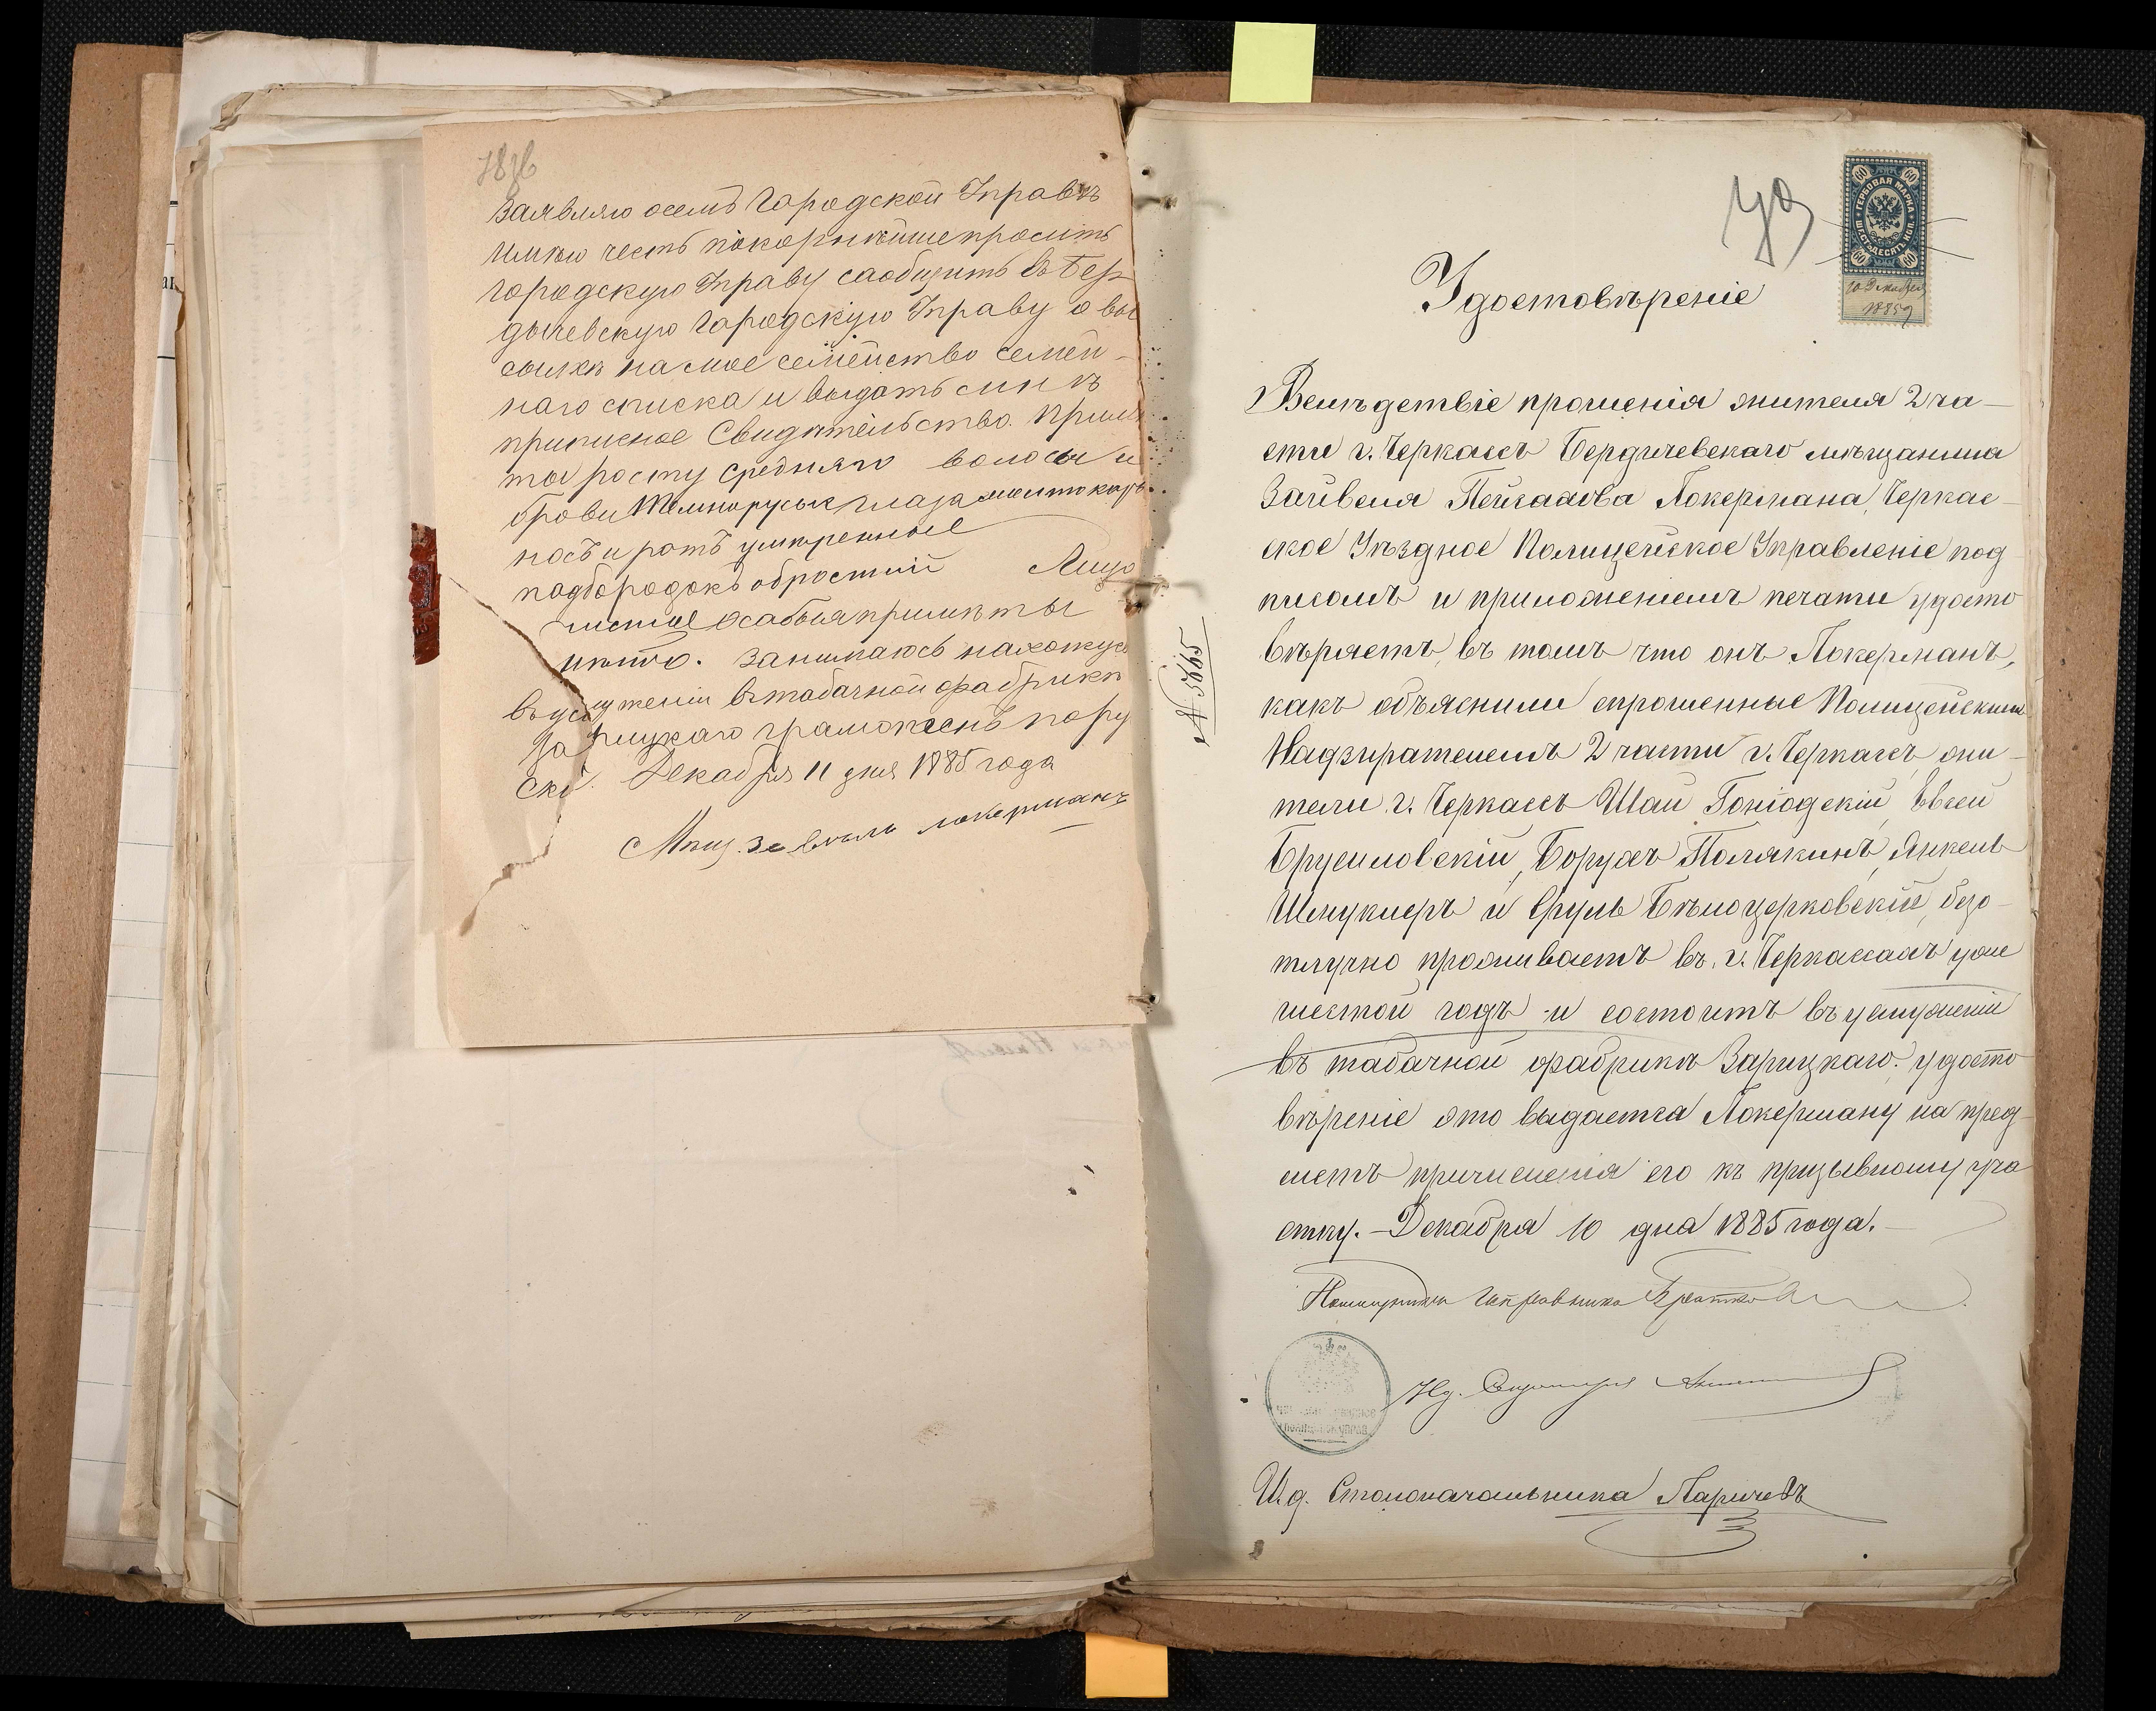 заявляю осемъ Городской Управѣ
имѣю честь покорнѣйше просить
городскую Управу сообщить въ Бер
дичевскую Городскую Управу о вы
сылкѣ на мое семейство семей-
наго списка и выдать мнѣ
приписное Свидѣтельство. Примѣ
ты росту средняго волосы и
брови темнорусые глаза
носъ и ротъ умѣренные
подбородокъ обростій Лицо
чистое особыя примѣты
нѣто. занимаюсь нахожусь
въ услуженіи въ табачной фабрики
За рицкаго грамотенъ по ру
ски. Декабря 11 дня 1885 года
Мѣщ. Зевѣль Локерманъ
ГЕРБОВАЯ МАРКА
ШЕСТЬДЕСЯТЪ КОП.
60 60 60 60
10 Декабря
1885 г
Удостовѣреніе
Вслѣдствіе прошенія жителя 2 ча-
сти г. Черкассъ Бердичевскаго мѣщанина
Зайвеля Пейсахова Локермана, Черкас-
ское Уѣздное Полицейское Управленіе под
писомъ и приложеніемъ печати удосто
вѣряетъ, въ томъ что онъ Локерманъ,
какъ объяснили спрошенные Полицейскимъ
Надзирателемъ 2 части г. Черкассъ жи-
тели г. Черкассъ Шая Гоніодскій, Евсей
Брусиловскій, Борухъ Полякинъ, Янкель
Шмуклеръ и Сруль Бѣлоцерковскій, безо-
тлучно проживаетъ въ г. Черкассахъ уже
шестой годъ и состоитъ въ услуженіи
въ табачной фабрикѣ Зарицкаго. удосто
вѣреніе это выдается Локерману на пред-
метъ причисленія его къ призывному уча
стку. - Декабря 10 дня 1885 года.
№ 5665
Помощникъ Исправника
И.д. Секретаря
И.д. Столоначальника Ларичевъ